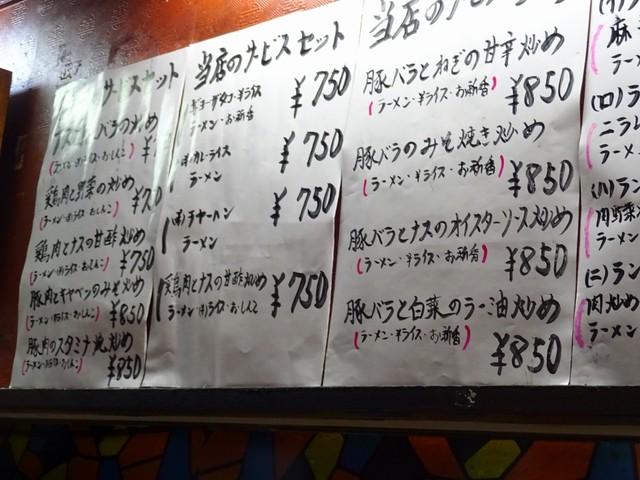 サービスセット
バラの炒め
鶏肉と野菜の炒め
鶏肉とナスの甘酢炒め
¥750
豚肉とキャベツのみそ炒め
(ラーメン・半ライス・おしんこ)
¥850
豚肉のスタミナ焼炒め
¥850
当店のサービスセット
ギョーザ2ケ・半ライス
ラーメン・お新香
¥750
(半)カレーライス
ラーメン
¥750
(半)チャーハン
ラーメン
¥750
鶏肉とナスの甘酢炒め
ラーメン・(半)ライス・おしんこ
¥750
当店の
豚バラとねぎの甘辛炒め
(ラーメン・半ライス・お新香)
¥850
豚バラのみそ焼き炒め
(ラーメン・半ライス・お新香)
¥850
豚バラとナスのオイスターソース炒め
(ラーメン・半ライス・お新香)
¥850
豚バラと白菜のラー油炒め
(ラーメン・半ライス・お新香)
¥850
麻
ラーメ
(ロ)ラン
ニラレ
ラーメン
(ハ)ラン
肉野菜
ラーメン
(ニ)ラン
肉炒め
ラーメン